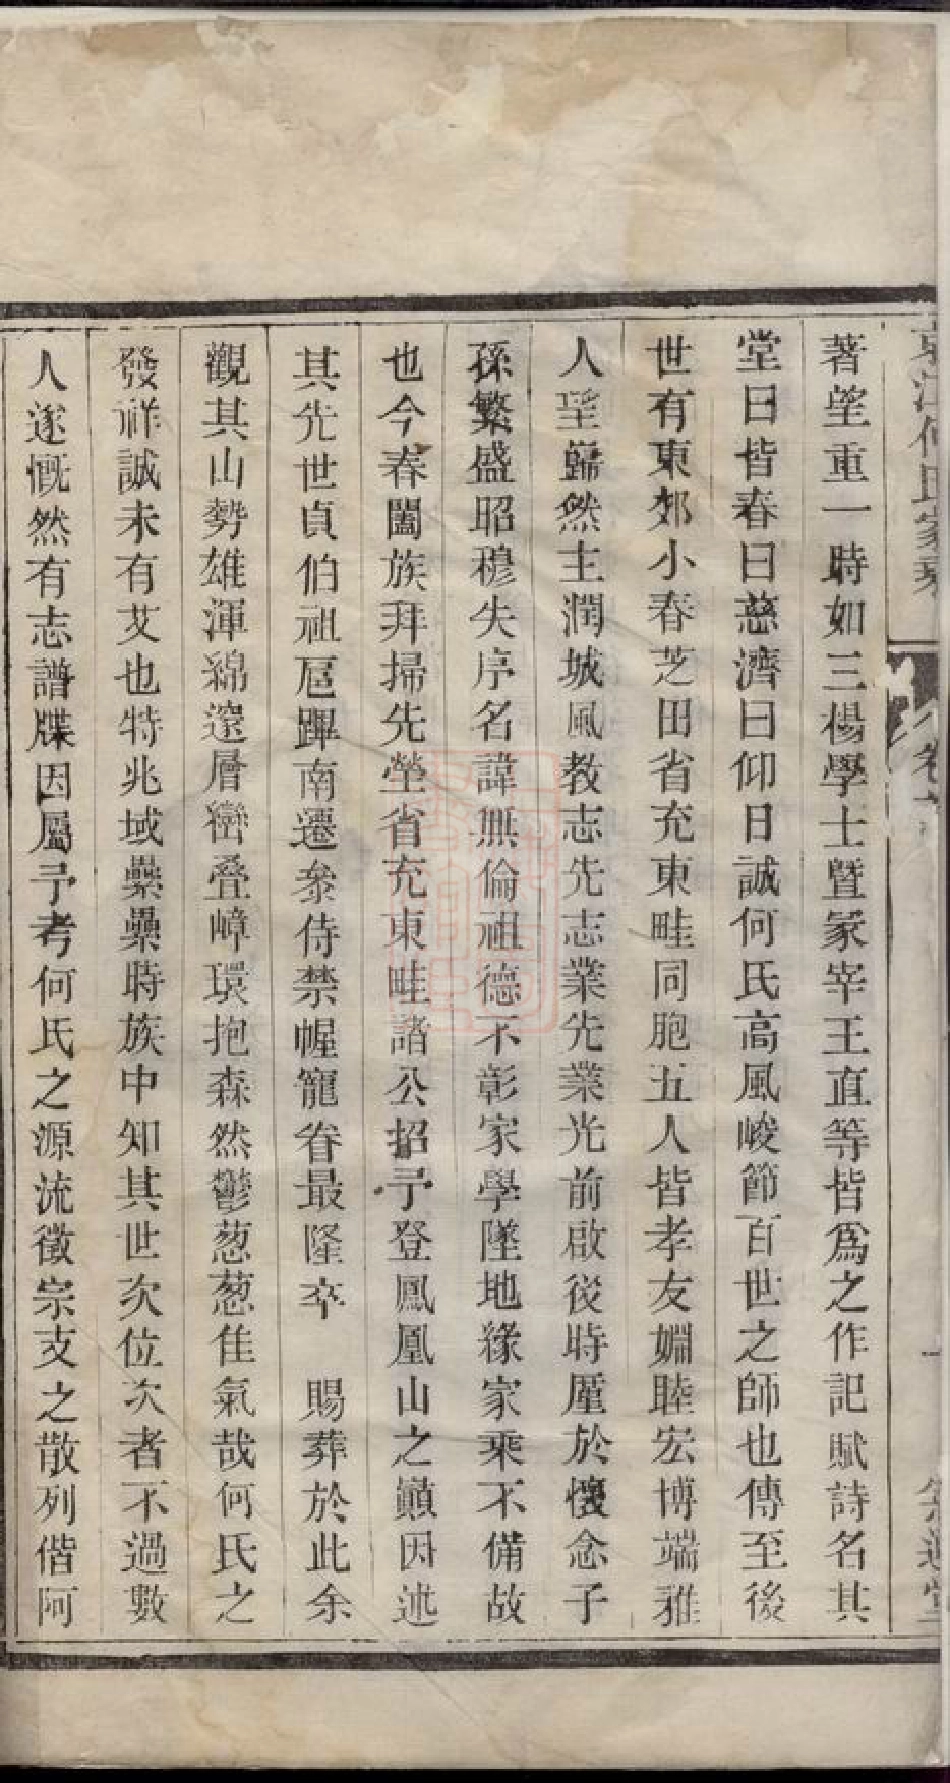 京江何氏家乘 卷 一
著望重一時如三楊學士暨冢宰王直等皆爲之作記賦詩名其
堂曰皆春曰慈濟曰仰日誠何氏高風峻節百世之師也傳至後
世有東郊小春芝田省充東畦同胞五人皆孝友婣睦宏博端雅
人望巋然主潤城風教志先志業先業光前啟後時厪於懷念子
孫繁盛昭穆失序名諱無倫祖德不彰家學墜地緣家乘不備故
也今春闔族拜掃先塋省充東畦諸公招予登鳳凰山之巔因述
其先世貞伯祖扈蹕南遷叅侍禁幄寵眷最隆卒　賜葬於此余
觀其山勢雄渾綿遠層巒叠嶂環抱森然鬱葱葱佳氣哉何氏之
發祥誠未有艾也特兆域纍纍時族中知其世次位次者不過數
人遂慨然有志譜牒因屬予考何氏之源流徵宗支之散列偕阿